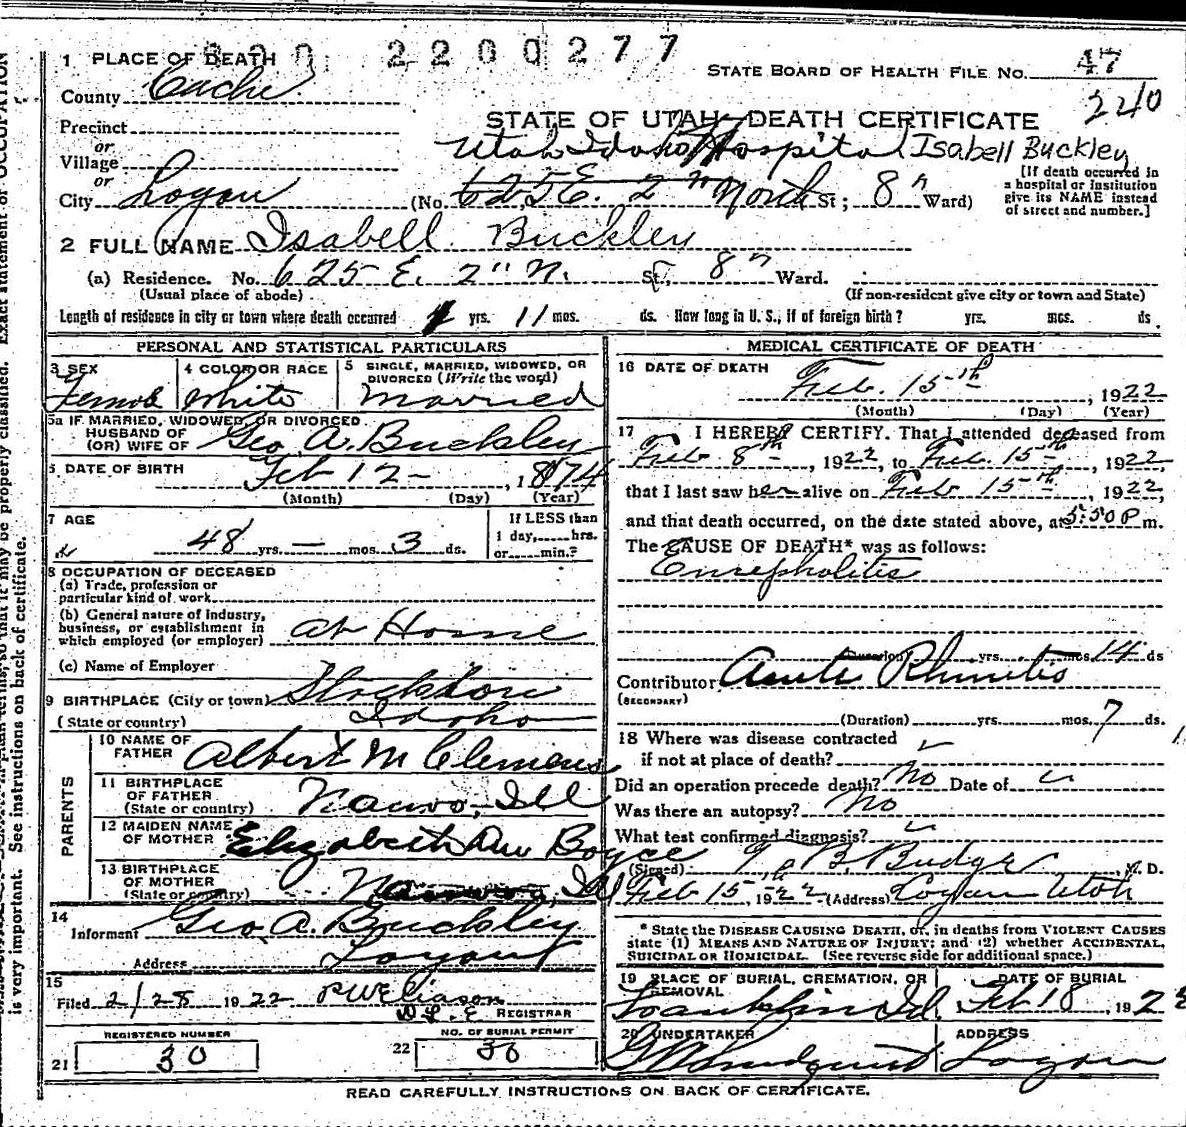 2200277
1 PLACE OF DEATH
STATE BOARD OF HEALTH FILE NO. 47
County Cache
240
STATE OF UTAH—DEATH CERTIFICATE
Precinct
or
Village
Utah Idaho Hospital Isabell Buckley
or
City Logan (No. 625 E. 2" North St; 8" Ward)
[If death occurred in
a hospital or institution
give its NAME instead
of street and number.]
2 FULL NAME Isabell Buckley
(a) Residence. No. 625 E. 2" N. St, 8" Ward.
(Usual place of abode)
(If non-resident give city or town and State)
Length of residence in city or town where death occurred yrs. 11 mos. ds. How long in U. S., if of foreign birth? yrs. mos. ds
PERSONAL AND STATISTICAL PARTICULARS
3 SEX
Female
4 COLOR OR RACE
White
5 SINGLE, MARRIED, WIDOWED, OR
DIVORCED (Write the word)
Married
5a IF MARRIED, WIDOWED, OR DIVORCED
HUSBAND OF
(OR) WIFE OF Geo A. Buckley
6 DATE OF BIRTH Feb 12 - , 1874
(Month) (Day) (Year)
7 AGE
48 yrs. — mos. 3 ds.
If LESS than
1 day,......hrs.
or......min.?
8 OCCUPATION OF DECEASED
(a) Trade, profession or
particular kind of work
(b) General nature of industry,
business, or establishment in
which employed (or employer)
at Home
(c) Name of Employer
9 BIRTHPLACE (City or town) Stockton
(State or country) Idaho
PARENTS
10 NAME OF
FATHER Albert M Clemens
11 BIRTHPLACE
OF FATHER
(State or country) Nauvo, Ill
12 MAIDEN NAME
OF MOTHER Elizabeth Ann Boyce
13 BIRTHPLACE
OF MOTHER
(State or country) Ill
14
Informant Geo. A. Buckley
Address Logan
15
Filed 2/28 1922
REGISTRAR
REGISTERED NUMBER
21 30
NO. OF BURIAL PERMIT
22 30
MEDICAL CERTIFICATE OF DEATH
16 DATE OF DEATH
Feb. 15th , 1922
(Month) (Day) (Year)
17 I HEREBY CERTIFY, That I attended deceased from
Feb 8th , 1922, to Feb. 15th , 1922,
that I last saw her alive on Feb 15th , 1922,
and that death occurred, on the date stated above, at 5:50 P m.
The CAUSE OF DEATH* was as follows:
Encepholitis
(Duration) yrs. mos. 14 ds
Contributor Acute Rhinitis
(SECONDARY)
(Duration) yrs. mos. 7 ds.
18 Where was disease contracted
if not at place of death?
Did an operation precede death? No Date of
Was there an autopsy? No
What test confirmed diagnosis?
(Signed) T. B. Budge , M. D.
Feb 15, 1922 (Address) Logan Utah
* State the DISEASE CAUSING DEATH, or, in deaths from VIOLENT CAUSES
state (1) MEANS AND NATURE OF INJURY; and (2) whether ACCIDENTAL,
SUICIDAL OR HOMICIDAL. (See reverse side for additional space.)
19 PLACE OF BURIAL, CREMATION, OR
REMOVAL
Franklin Id.
DATE OF BURIAL
Feb 18 , 192
20 UNDERTAKER
ADDRESS
Logan
READ CAREFULLY INSTRUCTIONS ON BACK OF CERTIFICATE.
so that it may be properly classified. Exact statement of OCCUPATION
is very important. See instructions on back of certificate.